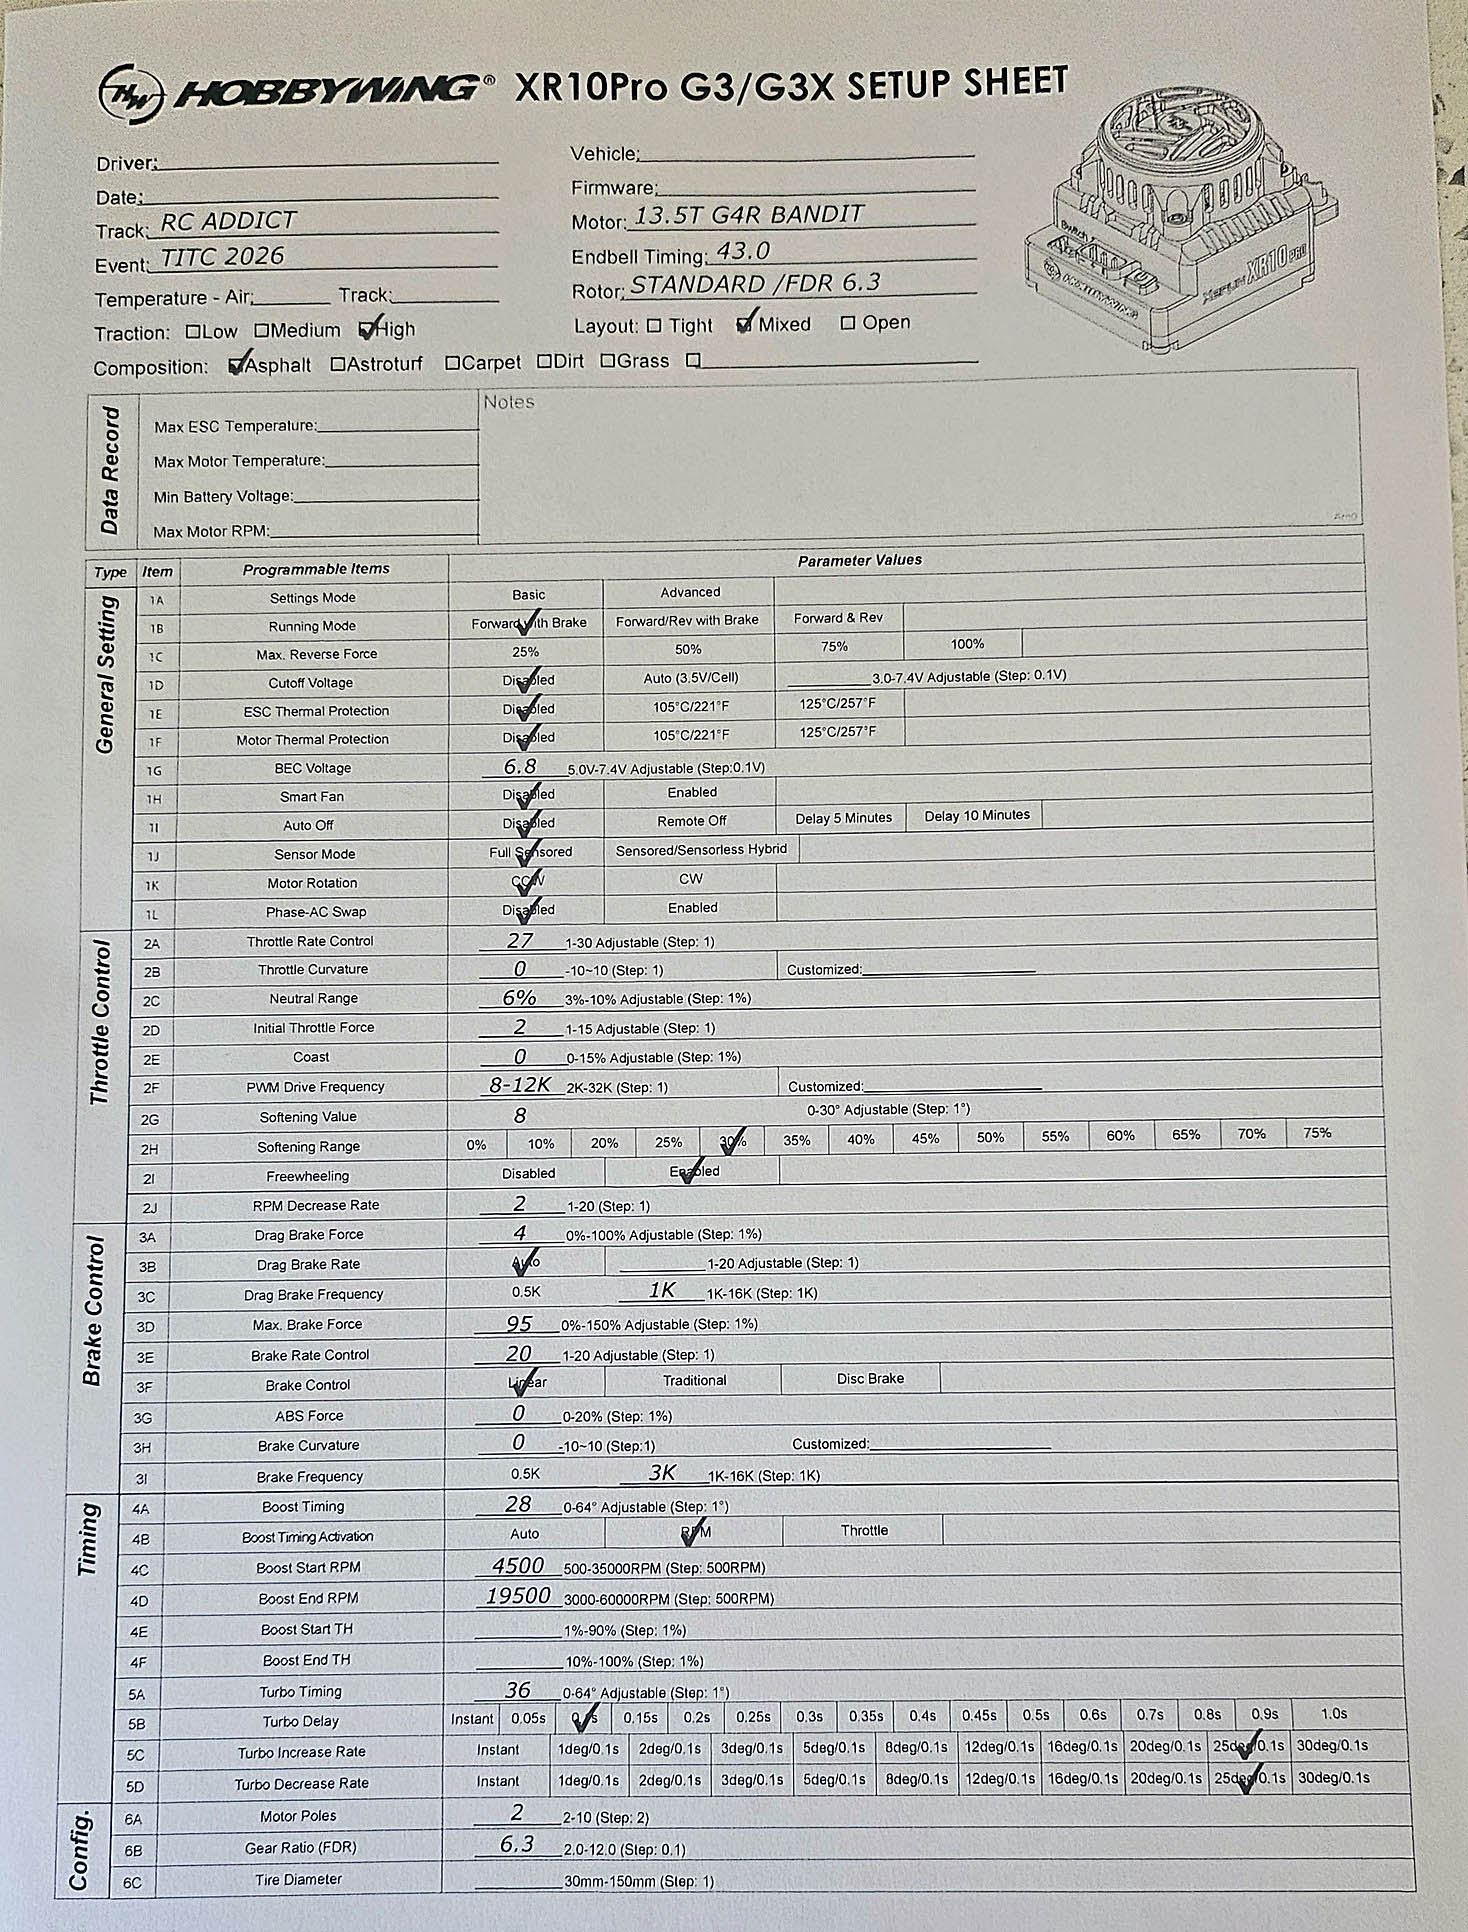 HW HOBBYWING® XR10Pro G3/G3X SETUP SHEET
Driver:
Vehicle:
Date:
Firmware:
Track: RC ADDICT
Motor: 13.5T G4R BANDIT
Event: TITC 2026
Endbell Timing: 43.0
Temperature - Air: Track:
Rotor: STANDARD /FDR 6.3
Traction: Low Medium High
Layout: Tight Mixed Open
Composition: Asphalt Astroturf Carpet Dirt Grass
Switch
HOBBYWING
XERUN XR10 PRO
Data Record
Max ESC Temperature:
Max Motor Temperature:
Min Battery Voltage:
Max Motor RPM:
Notes
Type Item Programmable Items Parameter Values
General Setting
1A Settings Mode Basic Advanced
1B Running Mode Forward with Brake Forward/Rev with Brake Forward & Rev
1C Max. Reverse Force 25% 50% 75% 100%
1D Cutoff Voltage Disabled Auto (3.5V/Cell) 3.0-7.4V Adjustable (Step: 0.1V)
1E ESC Thermal Protection Disabled 105°C/221°F 125°C/257°F
1F Motor Thermal Protection Disabled 105°C/221°F 125°C/257°F
1G BEC Voltage 6.8 5.0V-7.4V Adjustable (Step:0.1V)
1H Smart Fan Disabled Enabled
1I Auto Off Disabled Remote Off Delay 5 Minutes Delay 10 Minutes
1J Sensor Mode Full Sensored Sensored/Sensorless Hybrid
1K Motor Rotation CCW CW
1L Phase-AC Swap Disabled Enabled
Throttle Control
2A Throttle Rate Control 27 1-30 Adjustable (Step: 1)
2B Throttle Curvature 0 -10~10 (Step: 1) Customized:
2C Neutral Range 6% 3%-10% Adjustable (Step: 1%)
2D Initial Throttle Force 2 1-15 Adjustable (Step: 1)
2E Coast 0 0-15% Adjustable (Step: 1%)
2F PWM Drive Frequency 8-12K 2K-32K (Step: 1) Customized:
2G Softening Value 8 0-30° Adjustable (Step: 1°)
2H Softening Range 0% 10% 20% 25% 30% 35% 40% 45% 50% 55% 60% 65% 70% 75%
2I Freewheeling Disabled Enabled
2J RPM Decrease Rate 2 1-20 (Step: 1)
Brake Control
3A Drag Brake Force 4 0%-100% Adjustable (Step: 1%)
3B Drag Brake Rate Auto 1-20 Adjustable (Step: 1)
3C Drag Brake Frequency 0.5K 1K 1K-16K (Step: 1K)
3D Max. Brake Force 95 0%-150% Adjustable (Step: 1%)
3E Brake Rate Control 20 1-20 Adjustable (Step: 1)
3F Brake Control Linear Traditional Disc Brake
3G ABS Force 0 0-20% (Step: 1%)
3H Brake Curvature 0 -10~10 (Step:1) Customized:
3I Brake Frequency 0.5K 3K 1K-16K (Step: 1K)
Timing
4A Boost Timing 28 0-64° Adjustable (Step: 1°)
4B Boost Timing Activation Auto RPM Throttle
4C Boost Start RPM 4500 500-35000RPM (Step: 500RPM)
4D Boost End RPM 19500 3000-60000RPM (Step: 500RPM)
4E Boost Start TH 1%-90% (Step: 1%)
4F Boost End TH 10%-100% (Step: 1%)
5A Turbo Timing 36 0-64° Adjustable (Step: 1°)
5B Turbo Delay Instant 0.05s 0.1s 0.15s 0.2s 0.25s 0.3s 0.35s 0.4s 0.45s 0.5s 0.6s 0.7s 0.8s 0.9s 1.0s
5C Turbo Increase Rate Instant 1deg/0.1s 2deg/0.1s 3deg/0.1s 5deg/0.1s 8deg/0.1s 12deg/0.1s 16deg/0.1s 20deg/0.1s 25deg/0.1s 30deg/0.1s
5D Turbo Decrease Rate Instant 1deg/0.1s 2deg/0.1s 3deg/0.1s 5deg/0.1s 8deg/0.1s 12deg/0.1s 16deg/0.1s 20deg/0.1s 25deg/0.1s 30deg/0.1s
Config.
6A Motor Poles 2 2-10 (Step: 2)
6B Gear Ratio (FDR) 6.3 2.0-12.0 (Step: 0.1)
6C Tire Diameter 30mm-150mm (Step: 1)